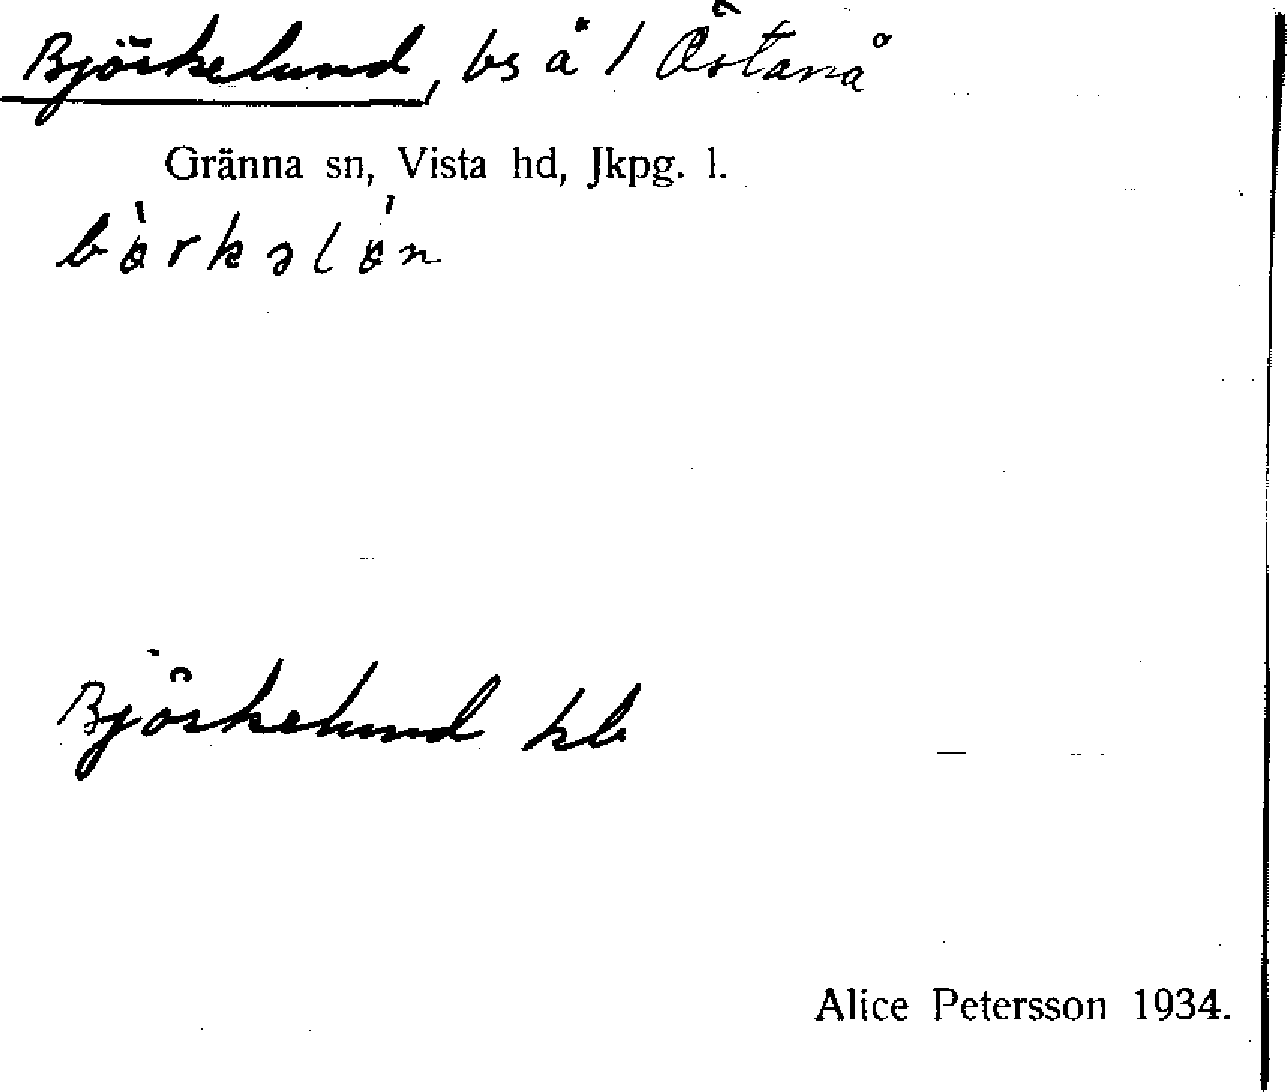 Björkelund, bs å 1 Östanå
Gränna sn, Vista hd, Jkpg. l.
bɵ̀rkəlɵ́n
Björkelund hb
Alice Petersson 1934.